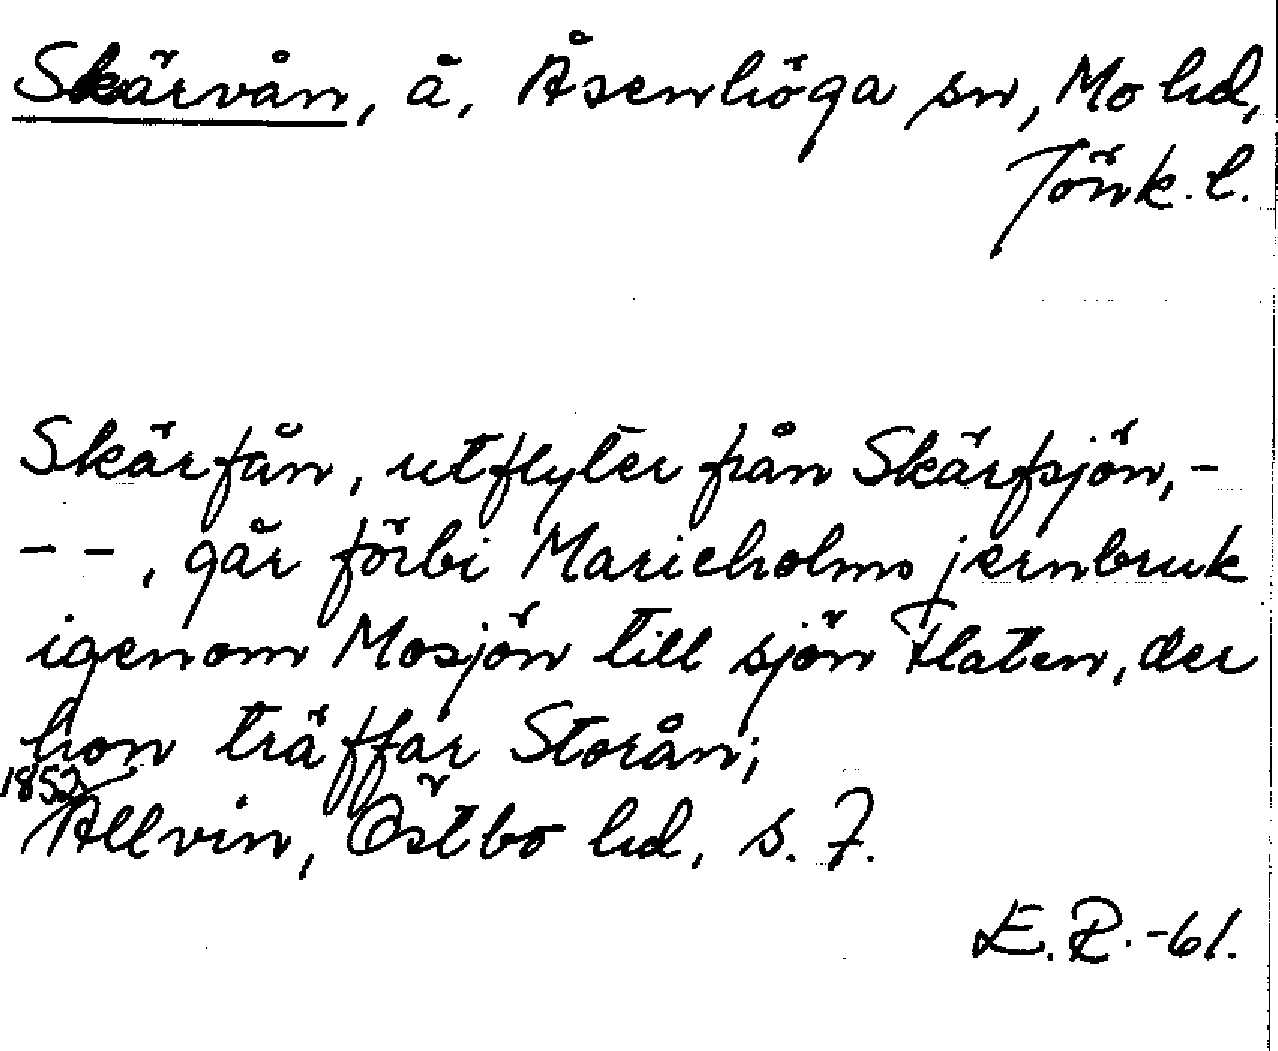 Skärvån, å, Åsenhöga sn, Mo hd,
Jönk. l.
Skärfån, utflyter från Skärfsjön, -
- - , går förbi Marieholms jernbruk
igenom Mosjön till sjön Flaten, der
hon träffar Storån;
1852
Allvin, Östbo hd, s. 7.
E.R. -61.